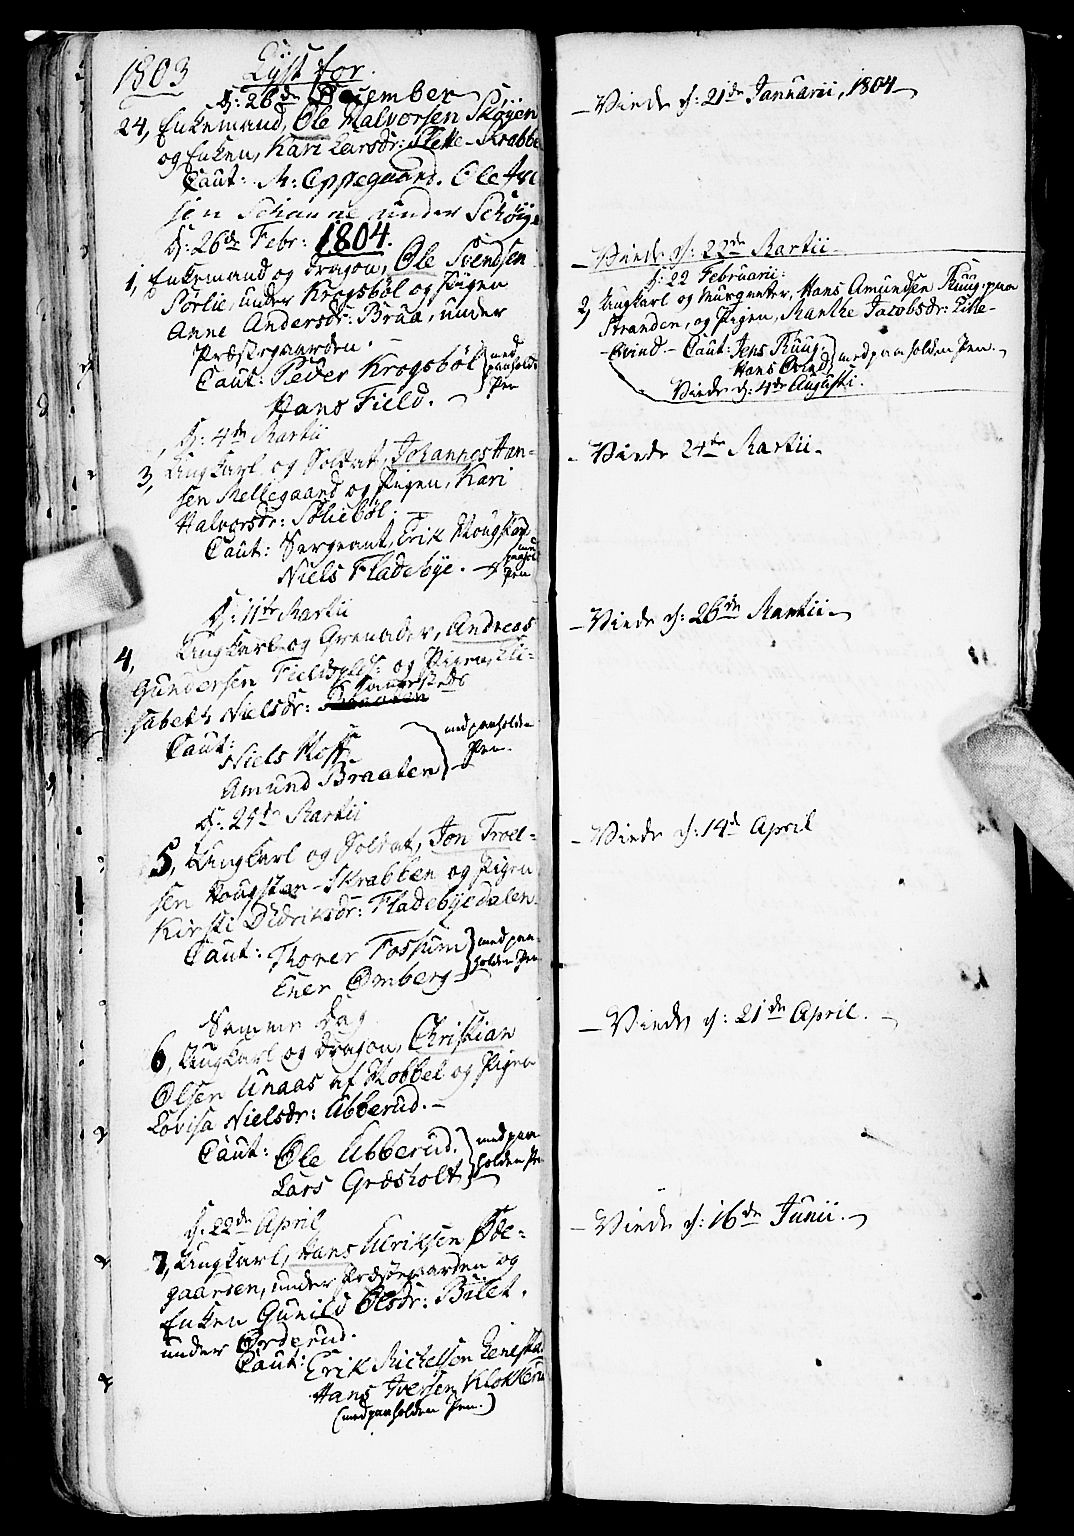 1803 Lyst for.
d: 26de December
24, Enkemand, Ole Halvorsen Skøyen
og Enken, Kari Larsdr: Slette-Krabbe
Caut: M: Oppegaard. Ole
sen Schanne under Schøye
d: 26de Febr: 1804.
1, Enkemand og Dragon, Ole Svendsen
Sørlie, under Krogsbøl og Pigen
Anne Andersdr: Braa, under
Præstegaarden.
Caut: Peder Krogsbøl med
paaholden
Hans Field. Pen
d: 4de Martii
3, Ungkarl og Soldat, Johannes Han-
sen Mellegaard og Pigen, Kari
Halvorsdr: Soliebøl.
Caut: Sergeant, Erik Mougstad
Niels Fladebye. med paahol Pen
d: 11te Martii
4, Ungkarl og Grenader, Andreas
Gundersen Fieldsylds: og Pigen, Eli-
sabeth Nielsdr: Braaten
Caut: Niels Moss med paaholden
Amund Braaten Pen.
d: 25de Martii
5, Ungkarl og Soldat, Jon Troel-
sen Mougstan-Skrabben og Pigen
Kirsti Didriksdr: Fladebyedalen.
Caut: Thorer Fossum med paa-
Ener Omberg holden Pen
Samme Dag
6, Ungkarl og Dragon, Christian
Olsen Unaas af Mobbel og Pigen
Lovisa Nielsdr: Ubberud.
Caut: Ole Ubberud. med paa-
Lars Græsholt holden Pen
d: 22de April
7, Ungkarl, Hans Ulriksen Øde-
gaarsen, under Præstegaarden og
Enken Gunild Olsdr: Bilet.
under Orderud.
Caut: Erik Michelsen Enestad
Hans Iversen Klokkerud
(med paaholden Pen.)
Viede d: 21de Januarii, 1804
Viede d: 22de Martii
d: 22 Februarii:
2, Ungkarl og Murgenter, Hans Amundsen Ruug, paa
Stranden, og Pigen, Marthe Jacobsdr: Lille-
Qvind. Caut: Jens Ruug
Hans Qvind med paaholden Pen.
Viede d: 4de Augusti.
Viede 24de Martii
Viede d: 26de Martii
Viede d: 14de April
Viede d: 21de April.
Viede d: 16de Junii.